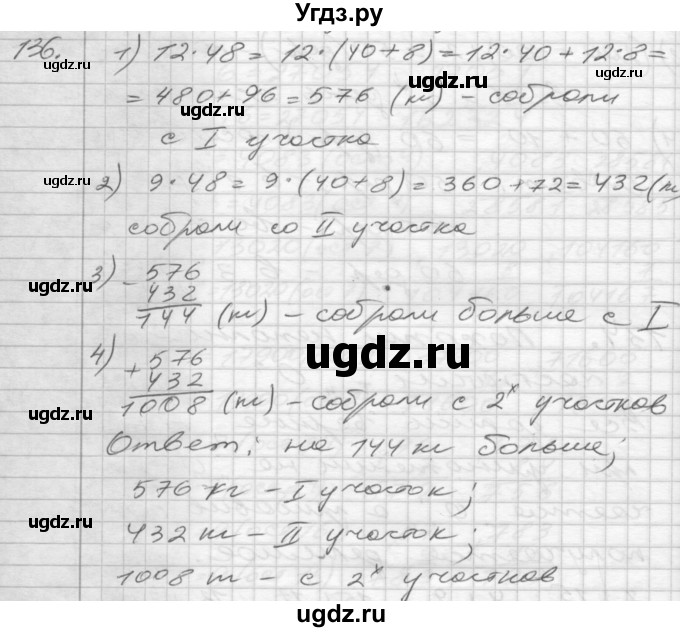 Угдз.ру
136. 1) 12·48 = 12·(40+8) = 12·40 + 12·8 =
= 480 + 96 = 576 (кг) - собрали
с I участка
2) 9·48 = 9·(40+8) = 360 + 72 = 432 (кг
собрали со II участка
3) - 576
432
144 (кг) - собрали больше с I
4) + 576
432
1008 (кг) - собрали с 2х участков
Ответ: на 144 кг больше;
576 кг - I участок;
432 кг - II участок;
1008 т - с 2х участков
ugdz.ru
ugdz.ru
ugdz.ru
ugdz.ru
ugdz.ru
ugdz.ru
ugdz.ru
ugdz.ru
ugdz.ru
ugdz.ru
ugdz.ru
ugdz.ru
ugdz.ru
ugdz.ru